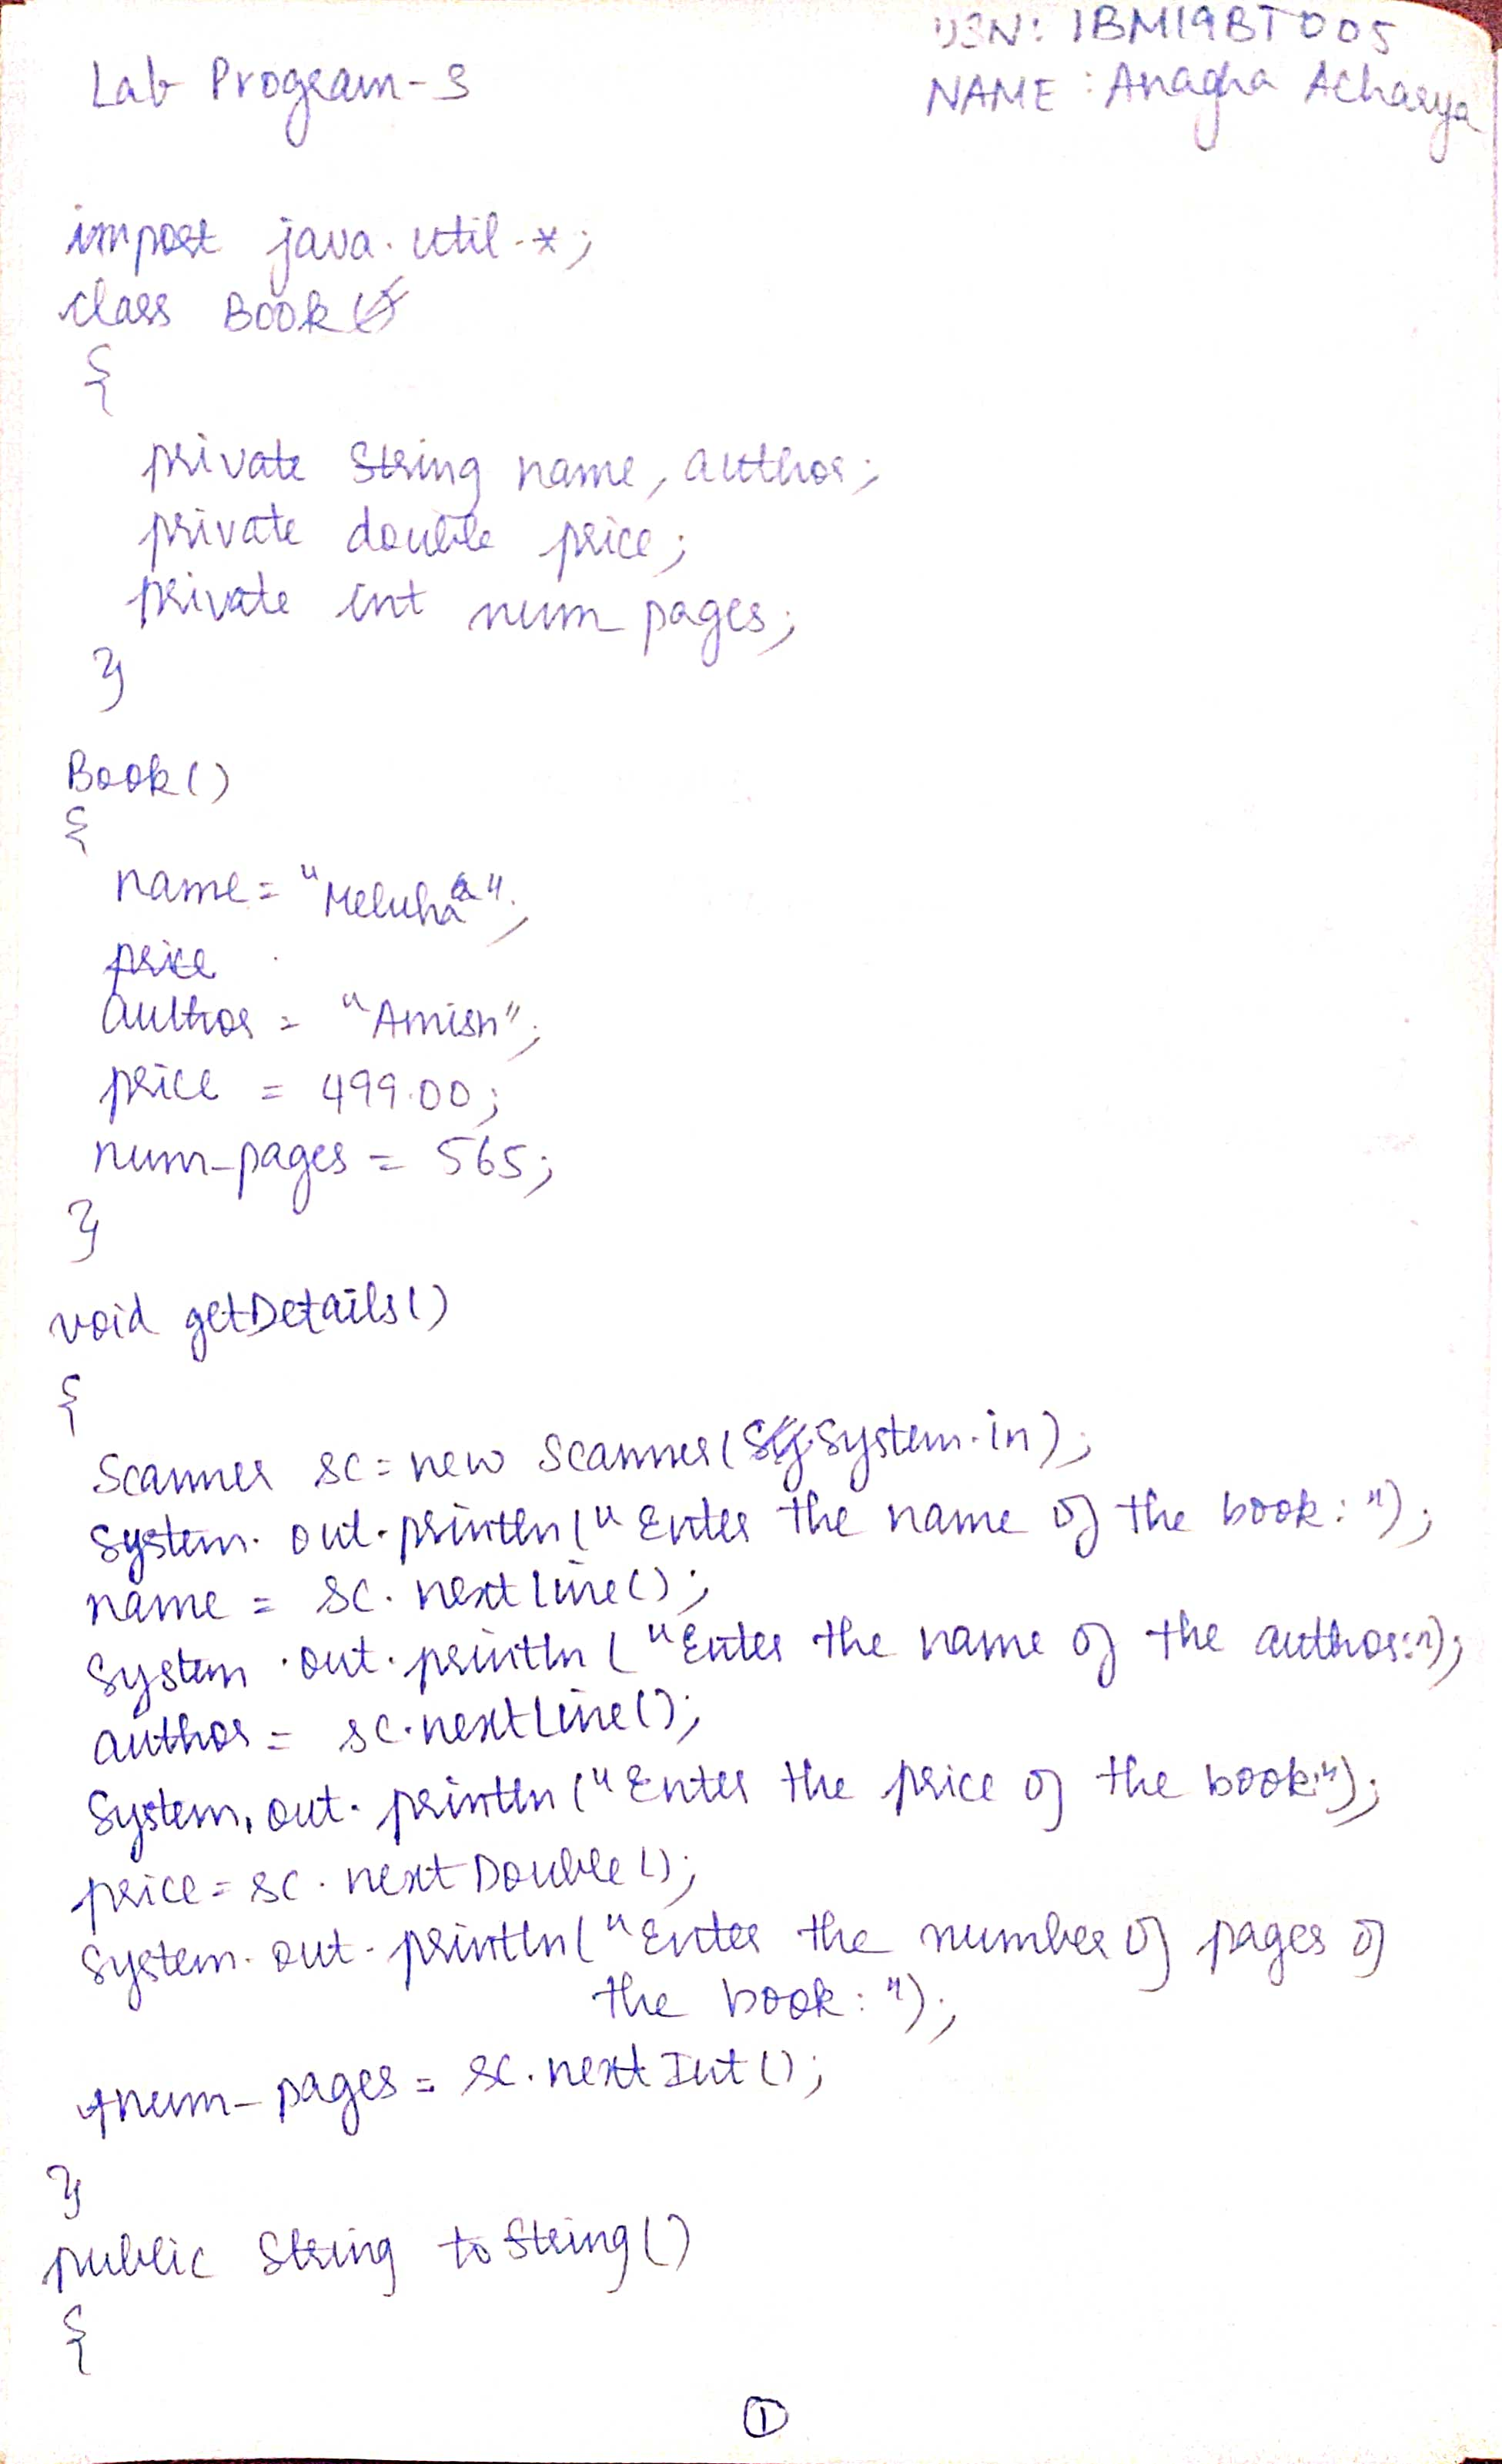 USN: 1BM19BT005
Lab Program-3
NAME: Anagha Acharya
import java.util.*;
class Book
{
private String name, author;
private double price;
private int num_pages;
}
Book()
{
name = "Meluha";
price
author = "Amish";
price = 499.00;
num_pages = 565;
}
void getDetails()
{
Scanner sc = new Scanner(System.in);
System.out.println("Enter the name of the book:");
name = sc.nextLine();
System.out.println("Enter the name of the author:");
author = sc.nextLine();
System.out.println("Enter the price of the book:");
price = sc.nextDouble();
System.out.println("Enter the number of pages of
the book:");
num_pages = sc.nextInt();
}
public String toString()
{
1